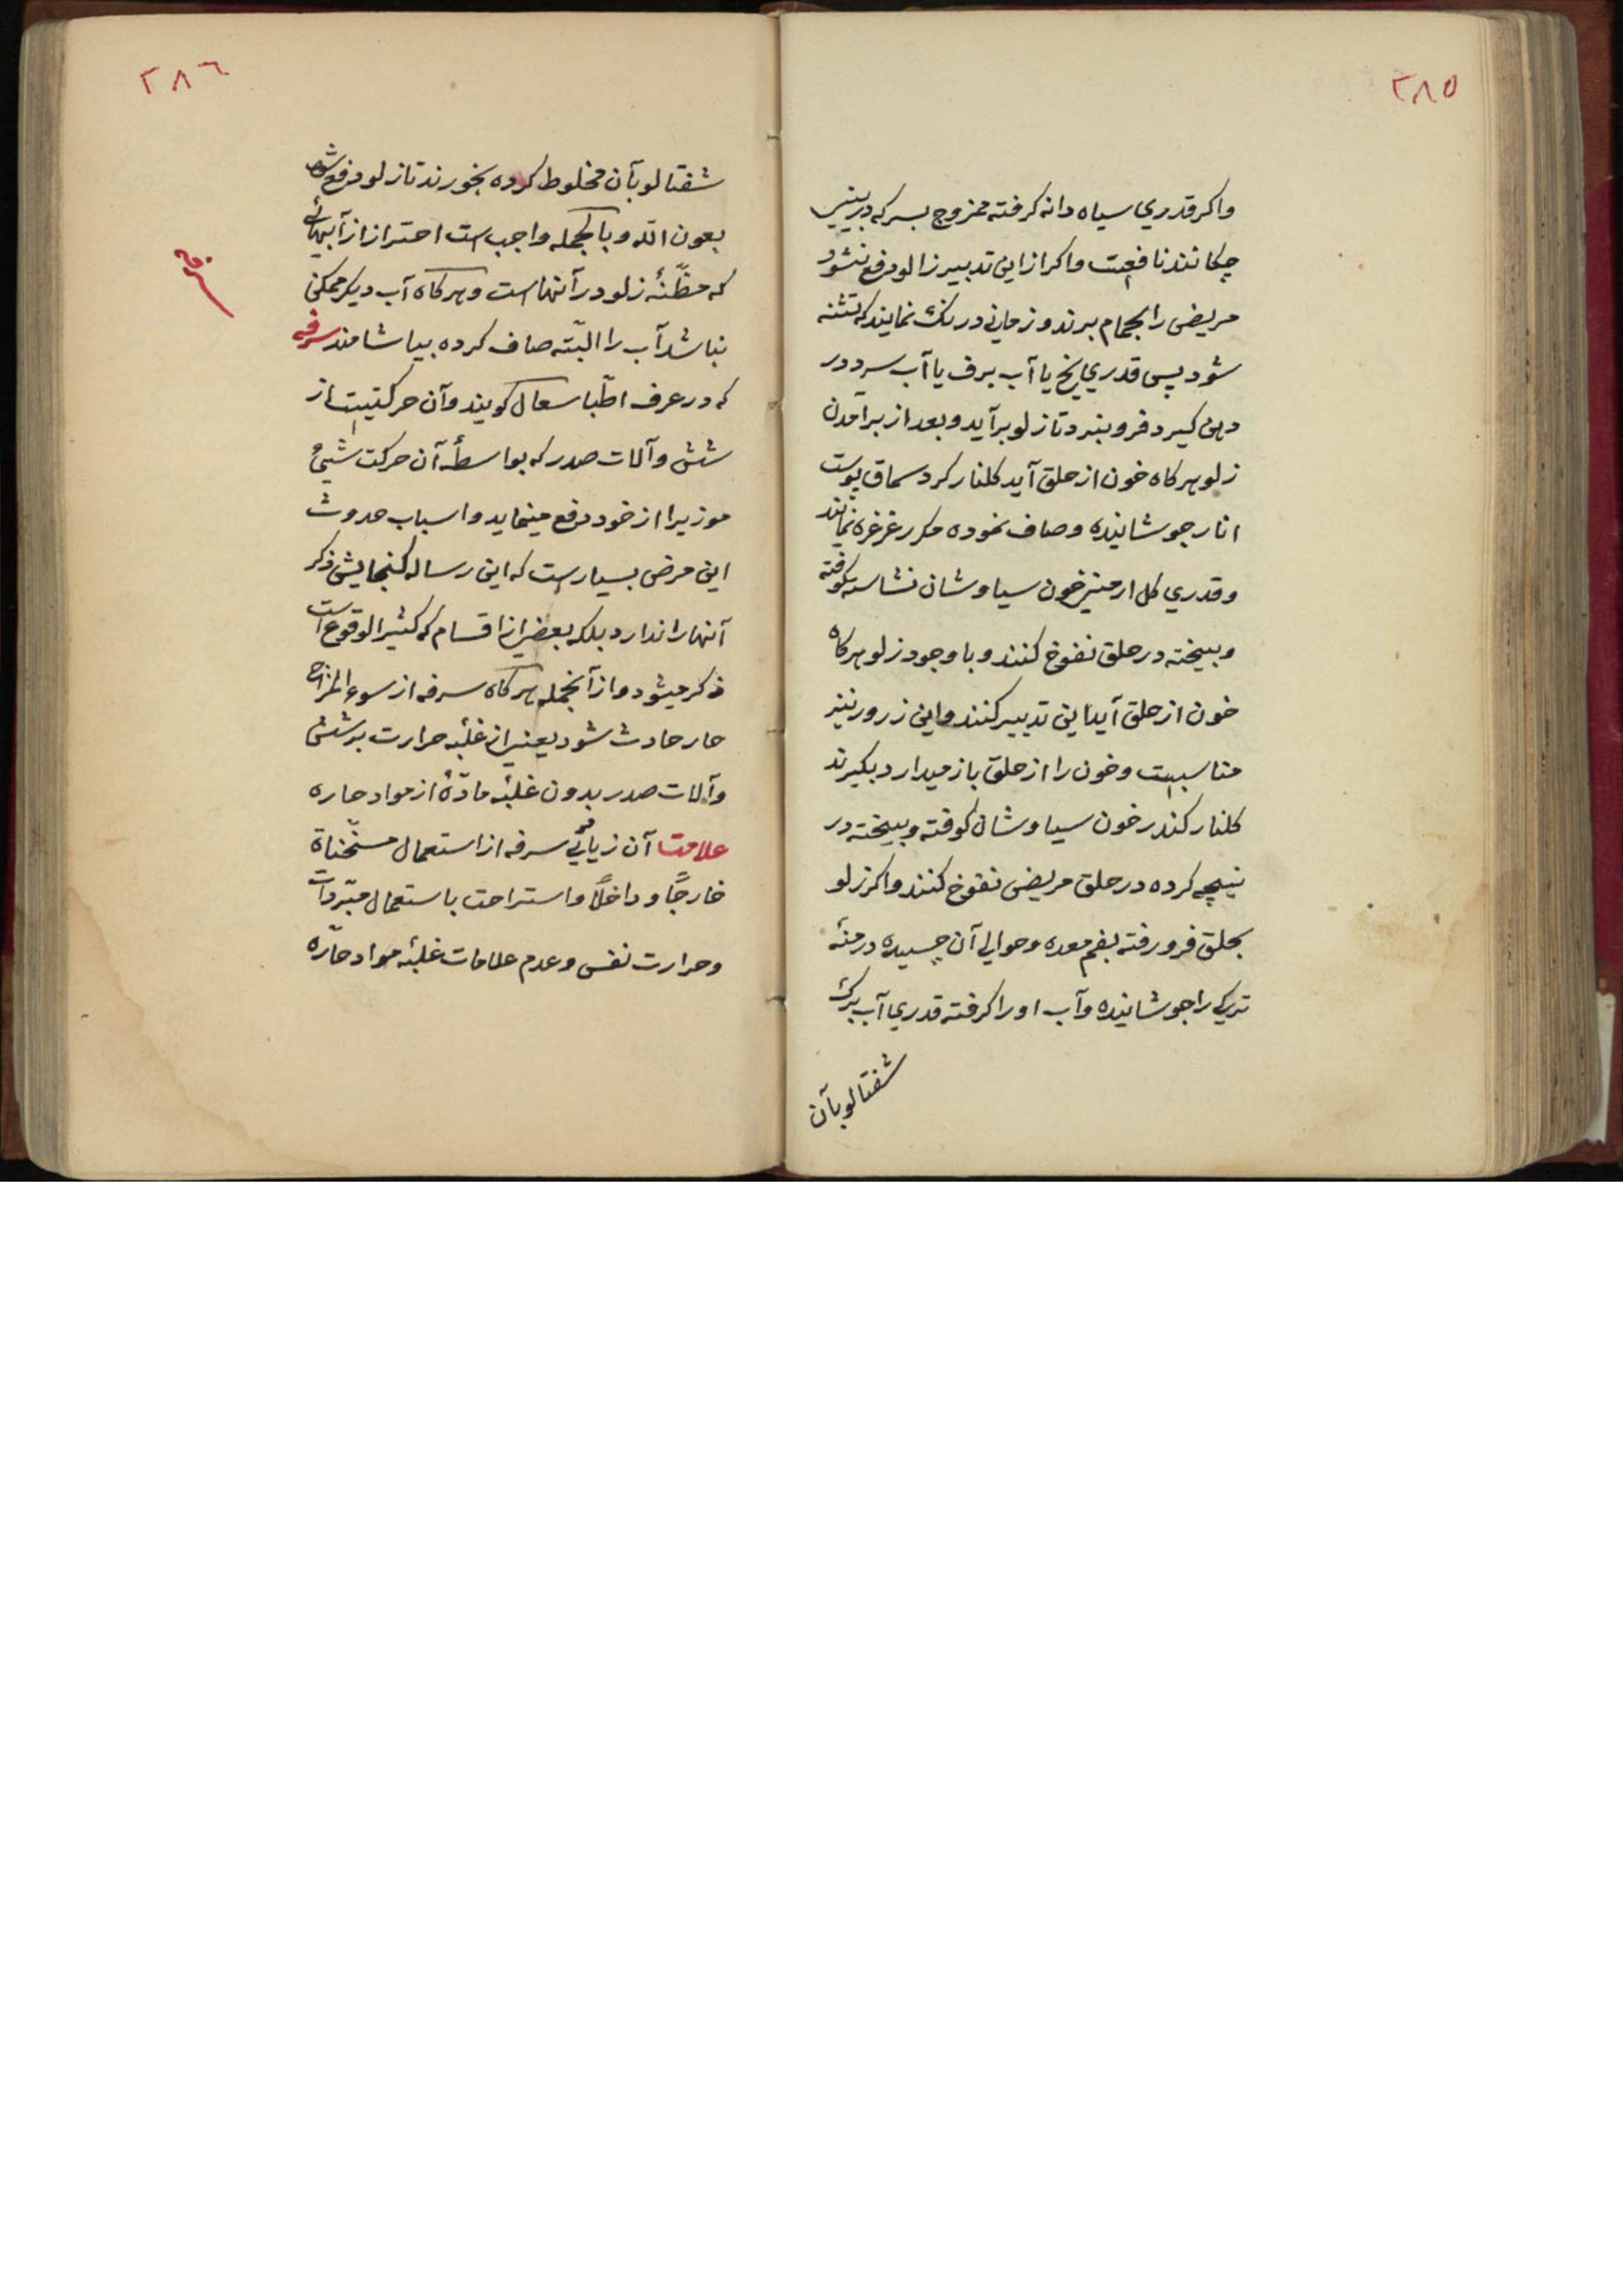 ۲۸۵
واکر قدري سیاه دانه کرفته ممزوج بسرکه در بینی
چکانند نافعست واکر ازاین تدبیر زالو دفع نشود
مریض را بحمام برند و زمانی درنك نمایند که تشنه
شود پس قدري یخ یا آب برف یا آب سرد در
دهن کیرد فرو نبرد تا زلو برآید و بعد از برآمدن
زلو هرکاه خون از حلق آید کلنار کرد سماق پوست
انار جوشانیده و صاف نموده مکرر غرغره نمایند
و قدري کل ارمنی خون سیاوشان نشاسته کوفته
و بیخته در حلق نفوخ کنند و با وجود زلو هرکاه
خون از حلق آید این تدبیر کنند و این زرور نیز
مناسبست و خون را از حلق باز میدارد بکیرند
کلنار کندر خون سیاوشان کوفته و بیخته در
نیچه کرده در حلق مریض نفوخ کنند واکر زلو
بحلق فرو رفته بفم معده و حوالی آن چسبیده درمنه
ترکی را جوشانیده و آب او را کرفته قدري آب برك
شفتالو بآن
۲۸٦
شفتالو بآن مخلوط کرده بخورند تا زلو دفع شود
بعون الله و بالجمله واجب است احتراز از آبهائی
که مظنّهٔ زلو در آنهاست و هرکاه آب دیکر ممکن
نباشد آب را البتّه صاف کرده بیاشامند سرفه
سرفه
که در عرف اطّبا سعال کویند و آن حرکتیست از
شش و آلات صدر که بواسطهٔ آن حرکت شیئ
موزیرا از خود دفع مینماید و اسباب حدوث
این مرض بسیار است که این رساله کنجایش ذکر
آنها را ندارد بلکه بعضی از اقسام که کثیر الوقوع است
ذکر میشود و از آنجمله هرکاه سرفه از سوء المزاج
حار حادث شود یعنی از غلبه حرارت بر شش
و آلات صدر بدون غلبهٔ مادّهٔ از مواد حاره
علامت آن زیادتی سرفه از استعمال مسخّناة
خارجًا و داخلًا و استراحت باستعمال مبّردات
و حرارت نفس و عدم علامات غلبهٔ مواد حارّه